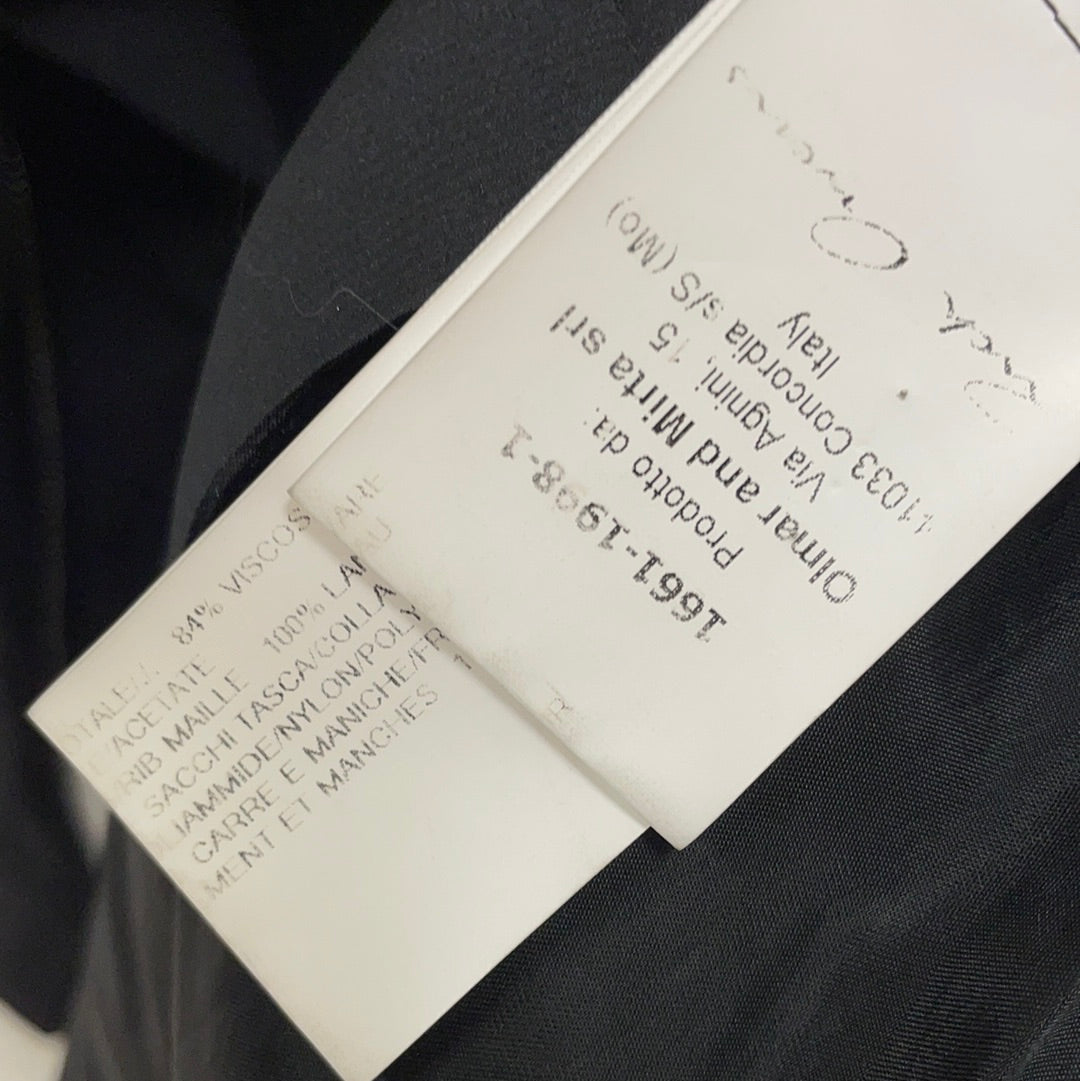 Rick Owens
1661-1998-1
Prodotto da:
Olmar and Mirta srl
Via Agnini, 15
41033 Concordia s/S (Mo)
Italy
84% VISCOS
ACETATE
RIB MAILLE 100% LAN
SACCHI TASCA/COLLA
IAMMIDE/NYLON/POLY
CARRE E MANICHE/FR
MENT ET MANCHES 1
ARE
AU